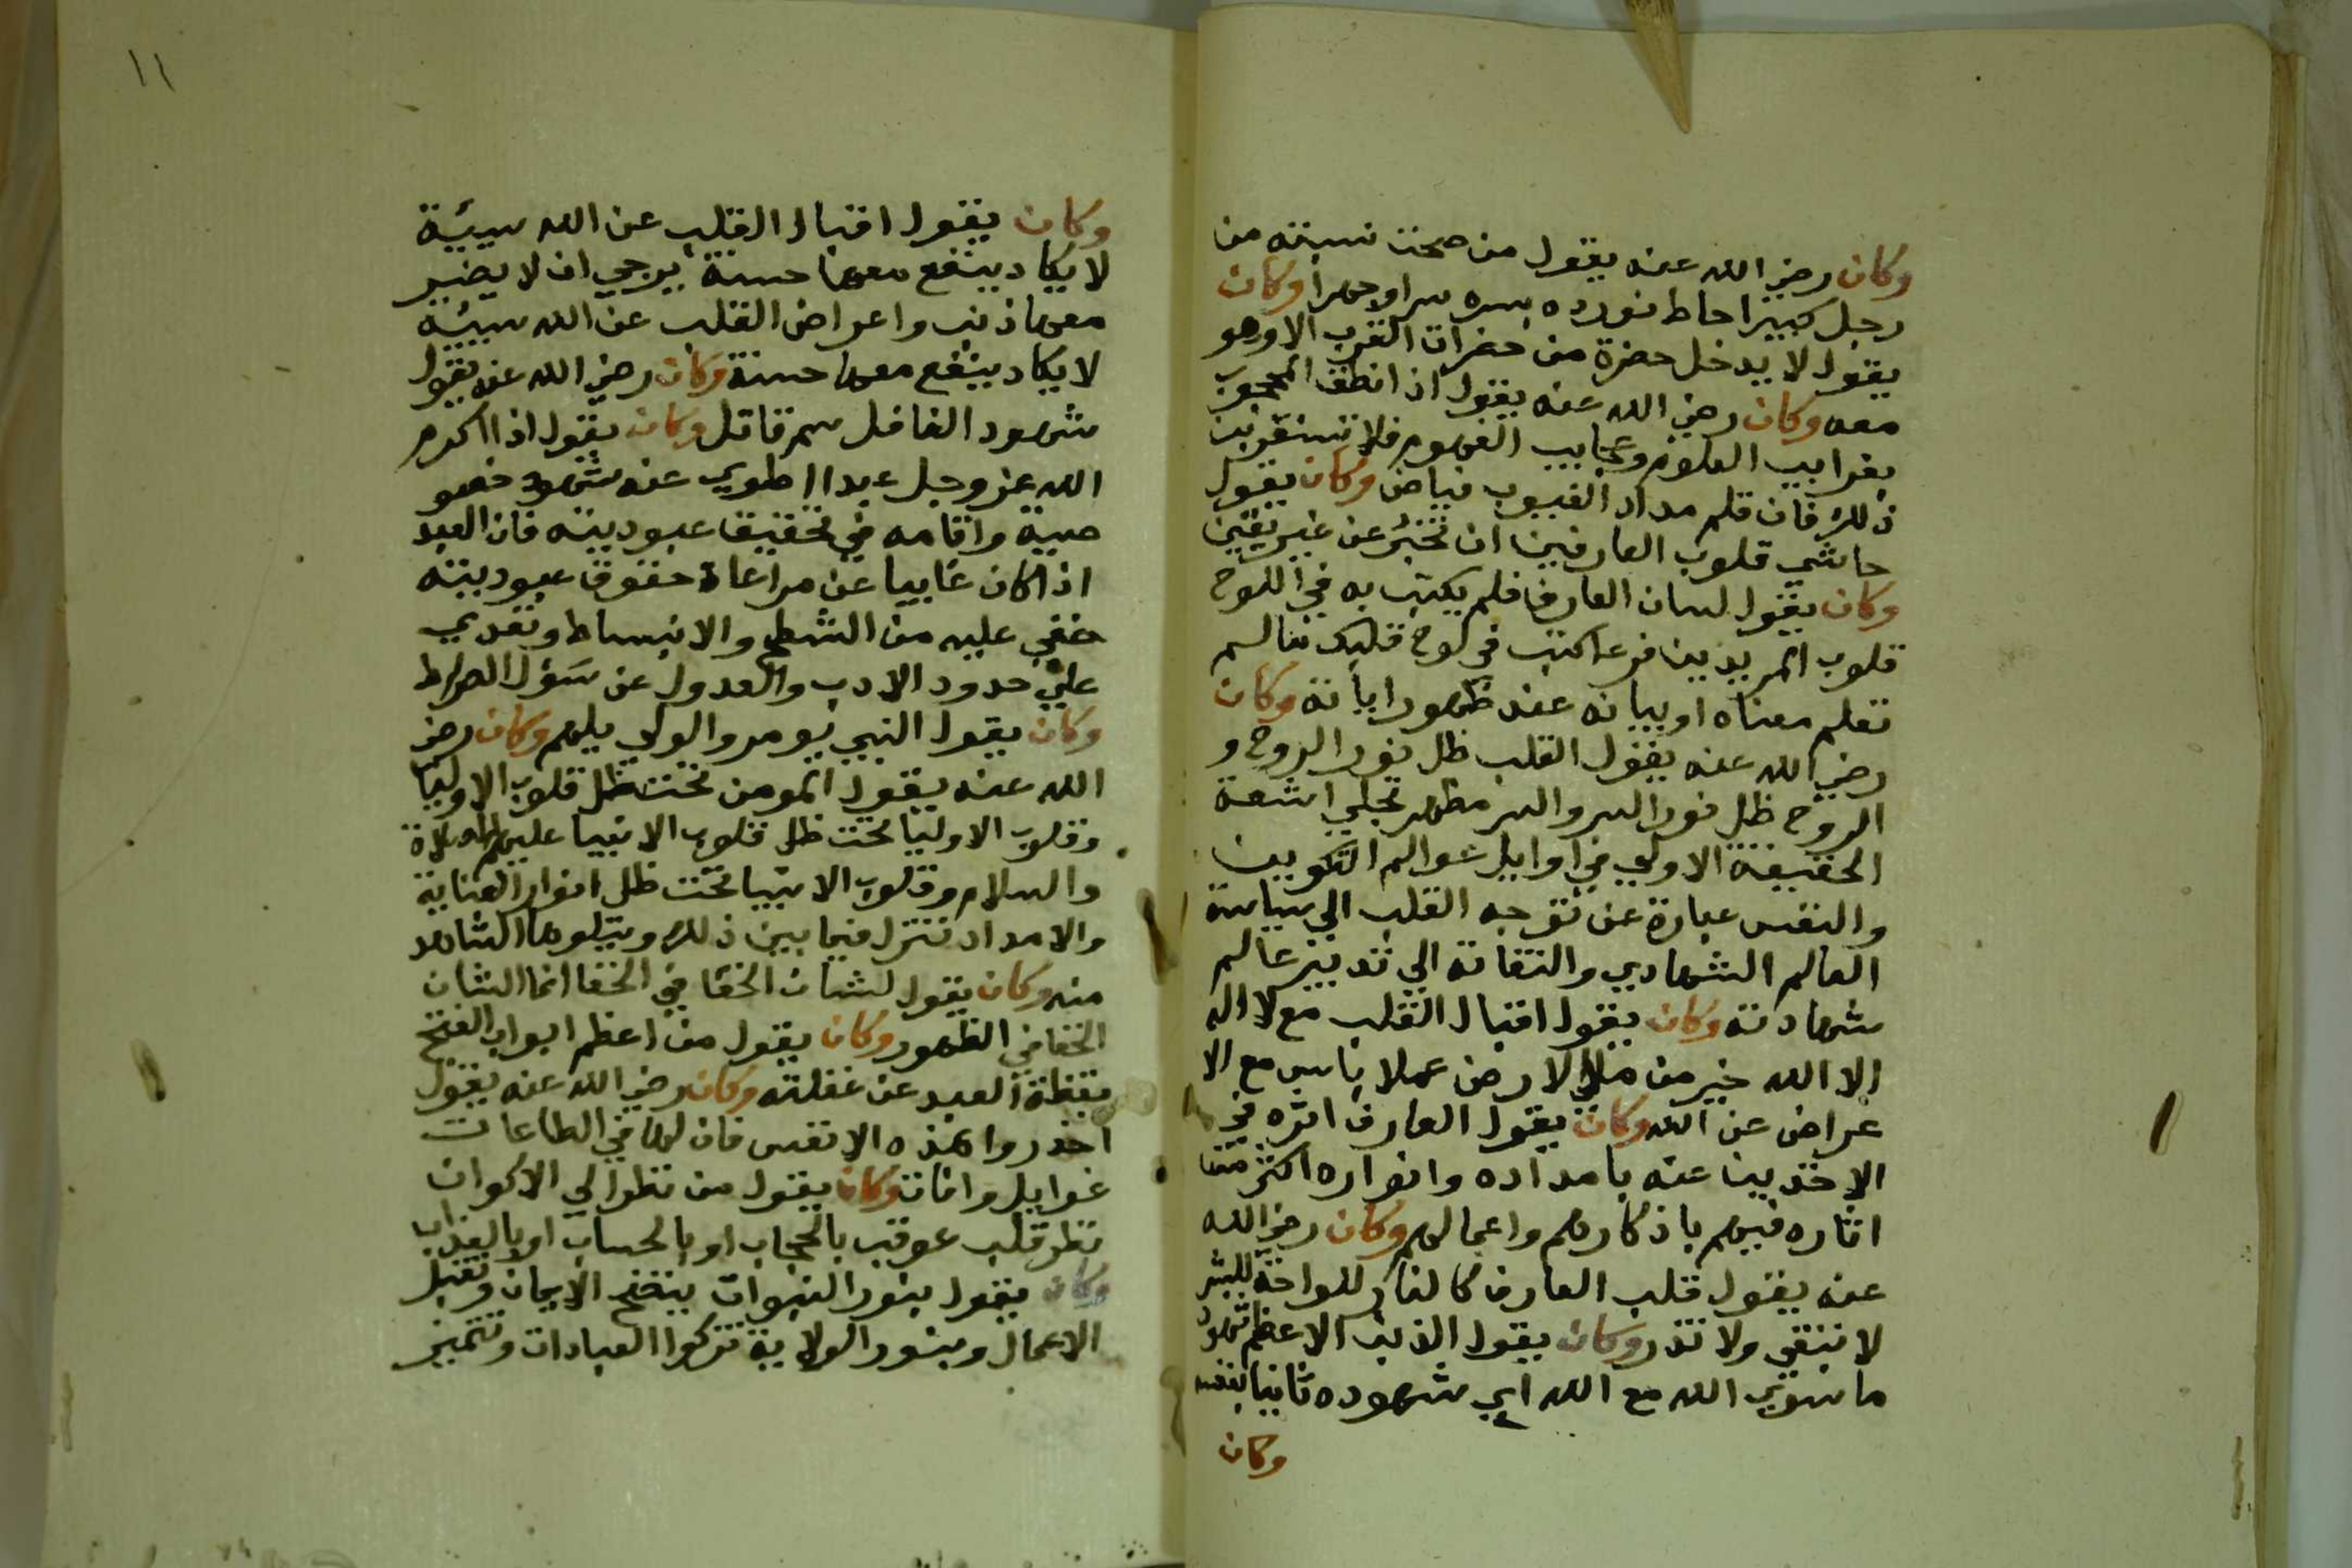 وكان رضي الله عنه يقول من صحت نسبته من
رجل كبير احاط نوره بسره سرا وجهرا وكان
يقول لا يدخل حضرة من حضرات القرب الا وهو
معه وكان رضي الله عنه يقول اذا نطق المحجوب
بغرايب العلوم وعجايب الفهوم فلا تستغربن
ذلك فان قلم مداد الغيوب فياض وكان يقول
حاشي قلوب العارفين ان تخبر عن غير يقين
وكان يقول لسان العارف قلم يكتب به في اللوح
قلوب المريدين فربما كتب في لوح قلبك مالم
تعلم معناه او بيانه عند ظهور اياته وكان
رضي الله عنه يقول القلب ظل نور الروح و
الروح ظل نور السر والسر مظهر تجلي اشعة
الحقيقة الاولي في اوايل عوالم التكوين
والنفس عبارة عن توجه القلب الي سياسة
العالم الشهادي والتفاته الي تدبير عالم
شهادته وكان يقول اقبال القلب مع لا اله
الا الله خير من ملا الارض عملا باس مع الا
عراض عن الله وكان يقول العارف اثره في
الاخذين عنه بامداده وانواره اكثر من
اثاره فيهم باذكارهم واعمالهم وكان رضي الله
عنه يقول قلب العارف كالنار للواحة للبشر
لا تبقي ولا تذر وكان يقول الذنب الاعظم شهود
ما سوي الله مع الله اي شهوده ثانيا بنفسه
وكان
١١
وكان يقول اقبال القلب عن الله سيئة
لا يكاد ينفع معها حسنة يرجي ان لا يضير
معها ذنب واعراض القلب عن الله سيئة
لا يكاد ينفع معها حسنة وكان رضي الله عنه يقول
شهود الغافل سم قاتل وكان يقول اذا اكرم
الله عز وجل عبدا اطوي عنه شهود خصو
صية واقامه في تحقيق عبوديته فان العبد
اذا كان غايبا عن مراعاة حقوق عبوديته
خفي عليه من الشطح والانبساط وتعدي
علي حدود الادب والعدول عن سؤل الصراط
وكان يقول النبي يومر والولي يلهم وكان رضي
الله عنه يقول المومن تحت ظل قلوب الاوليا
وقلوب الاوليا تحت ظل قلوب الانبيا عليهم الصلاة
والسلام وقلوب الانبيا تحت ظل انوار العناية
والامداد تتنزل فيما بين ذلك ويتلوها الشاهد
منه وكان يقول لشان الخفا في الخفا انما الشان
الخفا في الظهور وكان يقول من اعظم ابواب الفتح
يقظة العبد عن غفلته وكان رضي الله عنه يقول
احذروا هذه الانفس فان لها في الطاعات
غوايل وافات وكان يقول من نظر الي الاكوان
نظر قلب عوقب بالحجاب او بالحساب او بالعذاب
وكان يقول بنور النبوات يتضح الايمان وتقبل
الاعمال وبنور الولاية تزكوا العبادات وتتميز